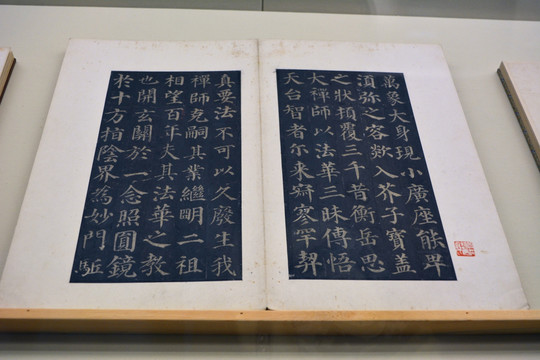 萬象大身現小廣座能卑
須弥之容歘入芥子寶盖
之狀頓覆三千昔衡岳思
大禪師以法華三昧傳悟
天台智者尒來寂寥罕契
真要法不可以久廢生我
禪師克嗣其業繼明二祖
相望百年夫其法華之教
也開玄關於一念照圓鏡
於十方指陰界為妙門駈